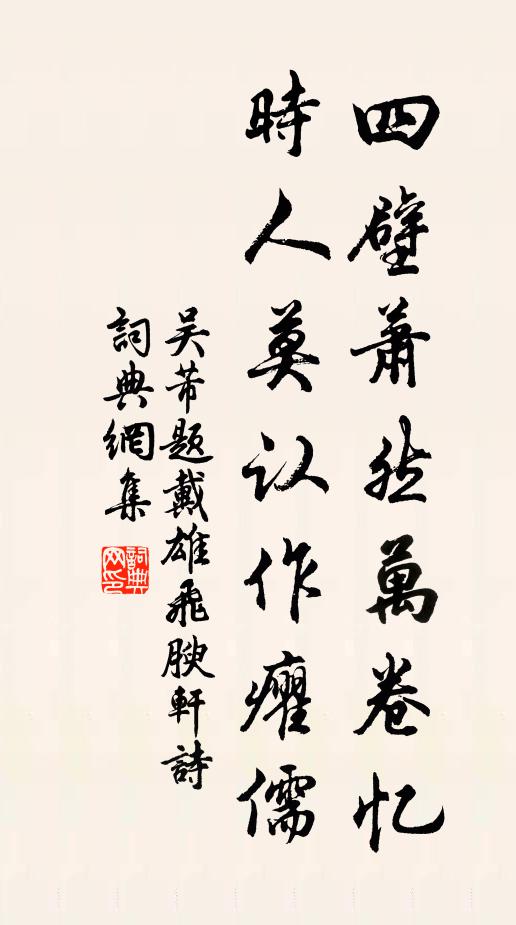 四壁萧然萬卷忆
時人莫认作癯儒
吴芾题戴雄飛腴軒詩
詞典網集
詞典网印